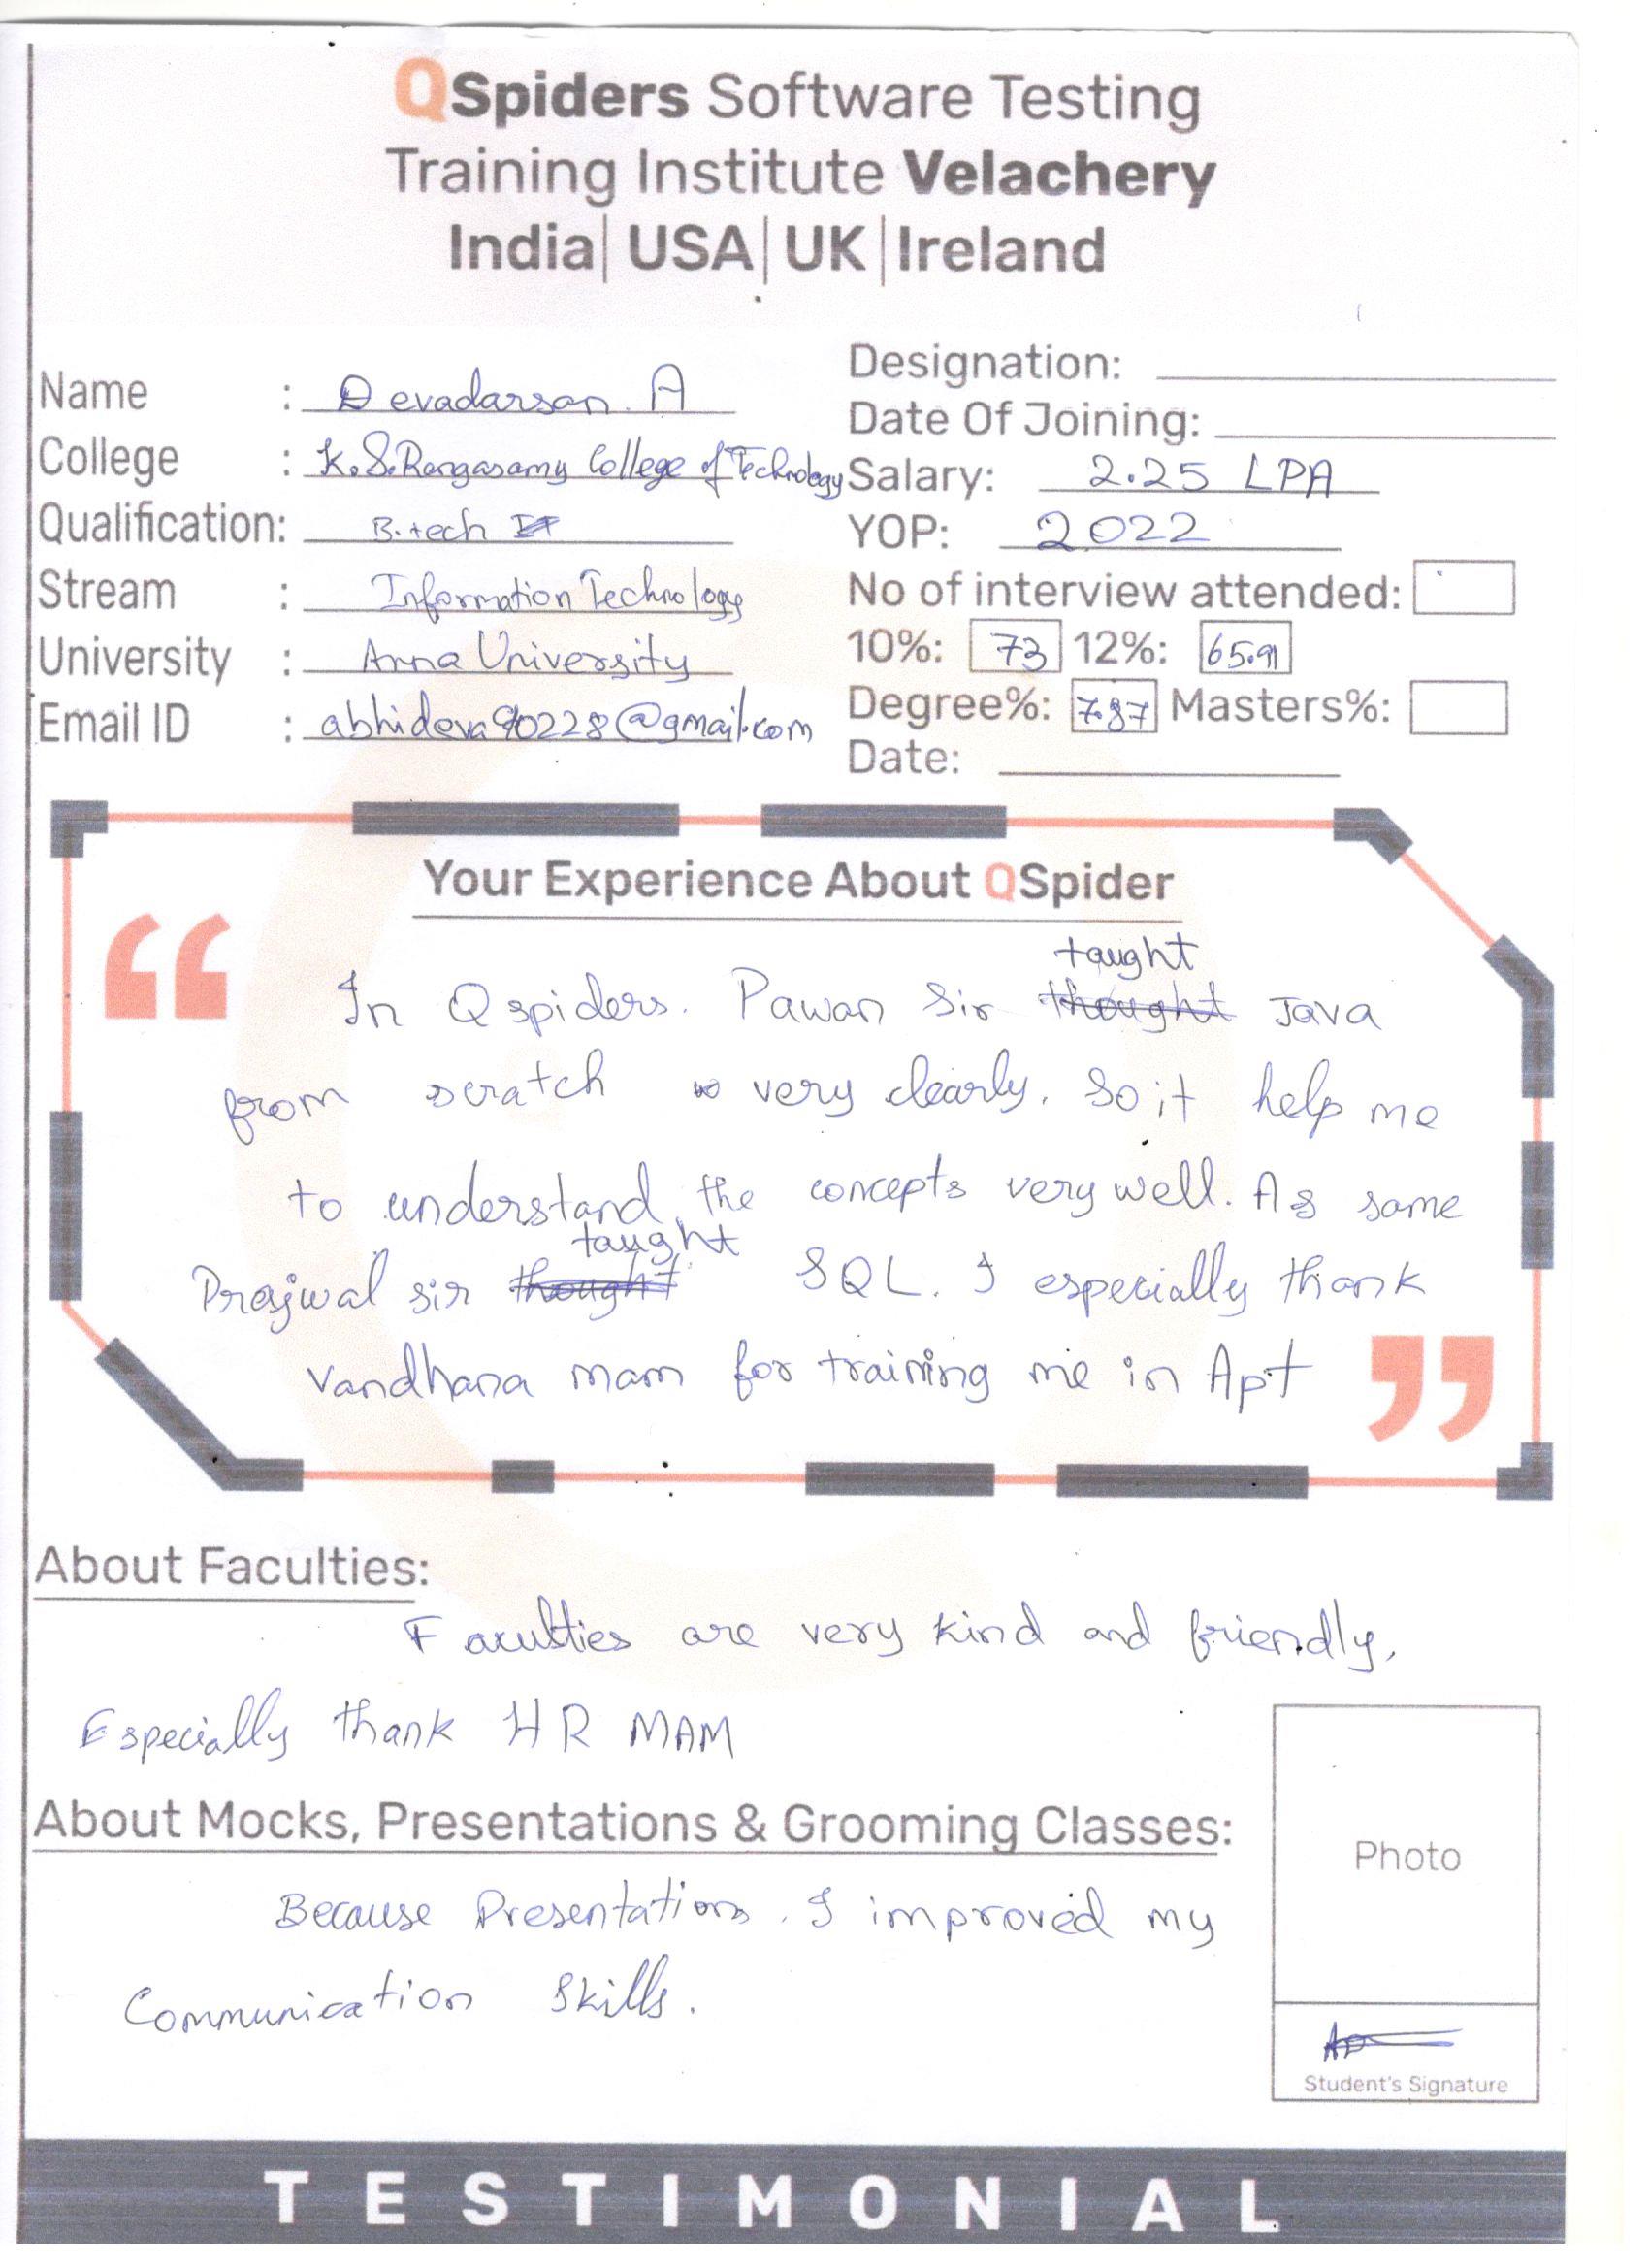 QSpiders Software Testing
Training Institute Velachery
India| USA| UK |Ireland
Name : Devadarsan. A
College : K.S.Rangasamy College of Technology
Qualification: B.tech IT
Stream : Information Technology
University : Anna University
Email ID : abhideva90228@gmail.com
Designation:
Date Of Joining:
Salary: 2.25 LPA
YOP: 2022
No of interview attended:
10%: 73 12%: 65.91
Degree%: 7.87 Masters%:
Date:
Your Experience About QSpider
“
In Qspiders. Pawan Sir taught Java
from scratch very clearly. So it help me
to understand the concepts very well. As same
Prajwal sir taught SQL. I especially thank
Vandhana mam for training me in Apt
”
About Faculties:
Faculties are very kind and friendly,
Especially thank HR MAM
About Mocks, Presentations & Grooming Classes:
Because Presentations. I improved my
Communication Skills.
Photo
Student's Signature
TESTIMONIAL